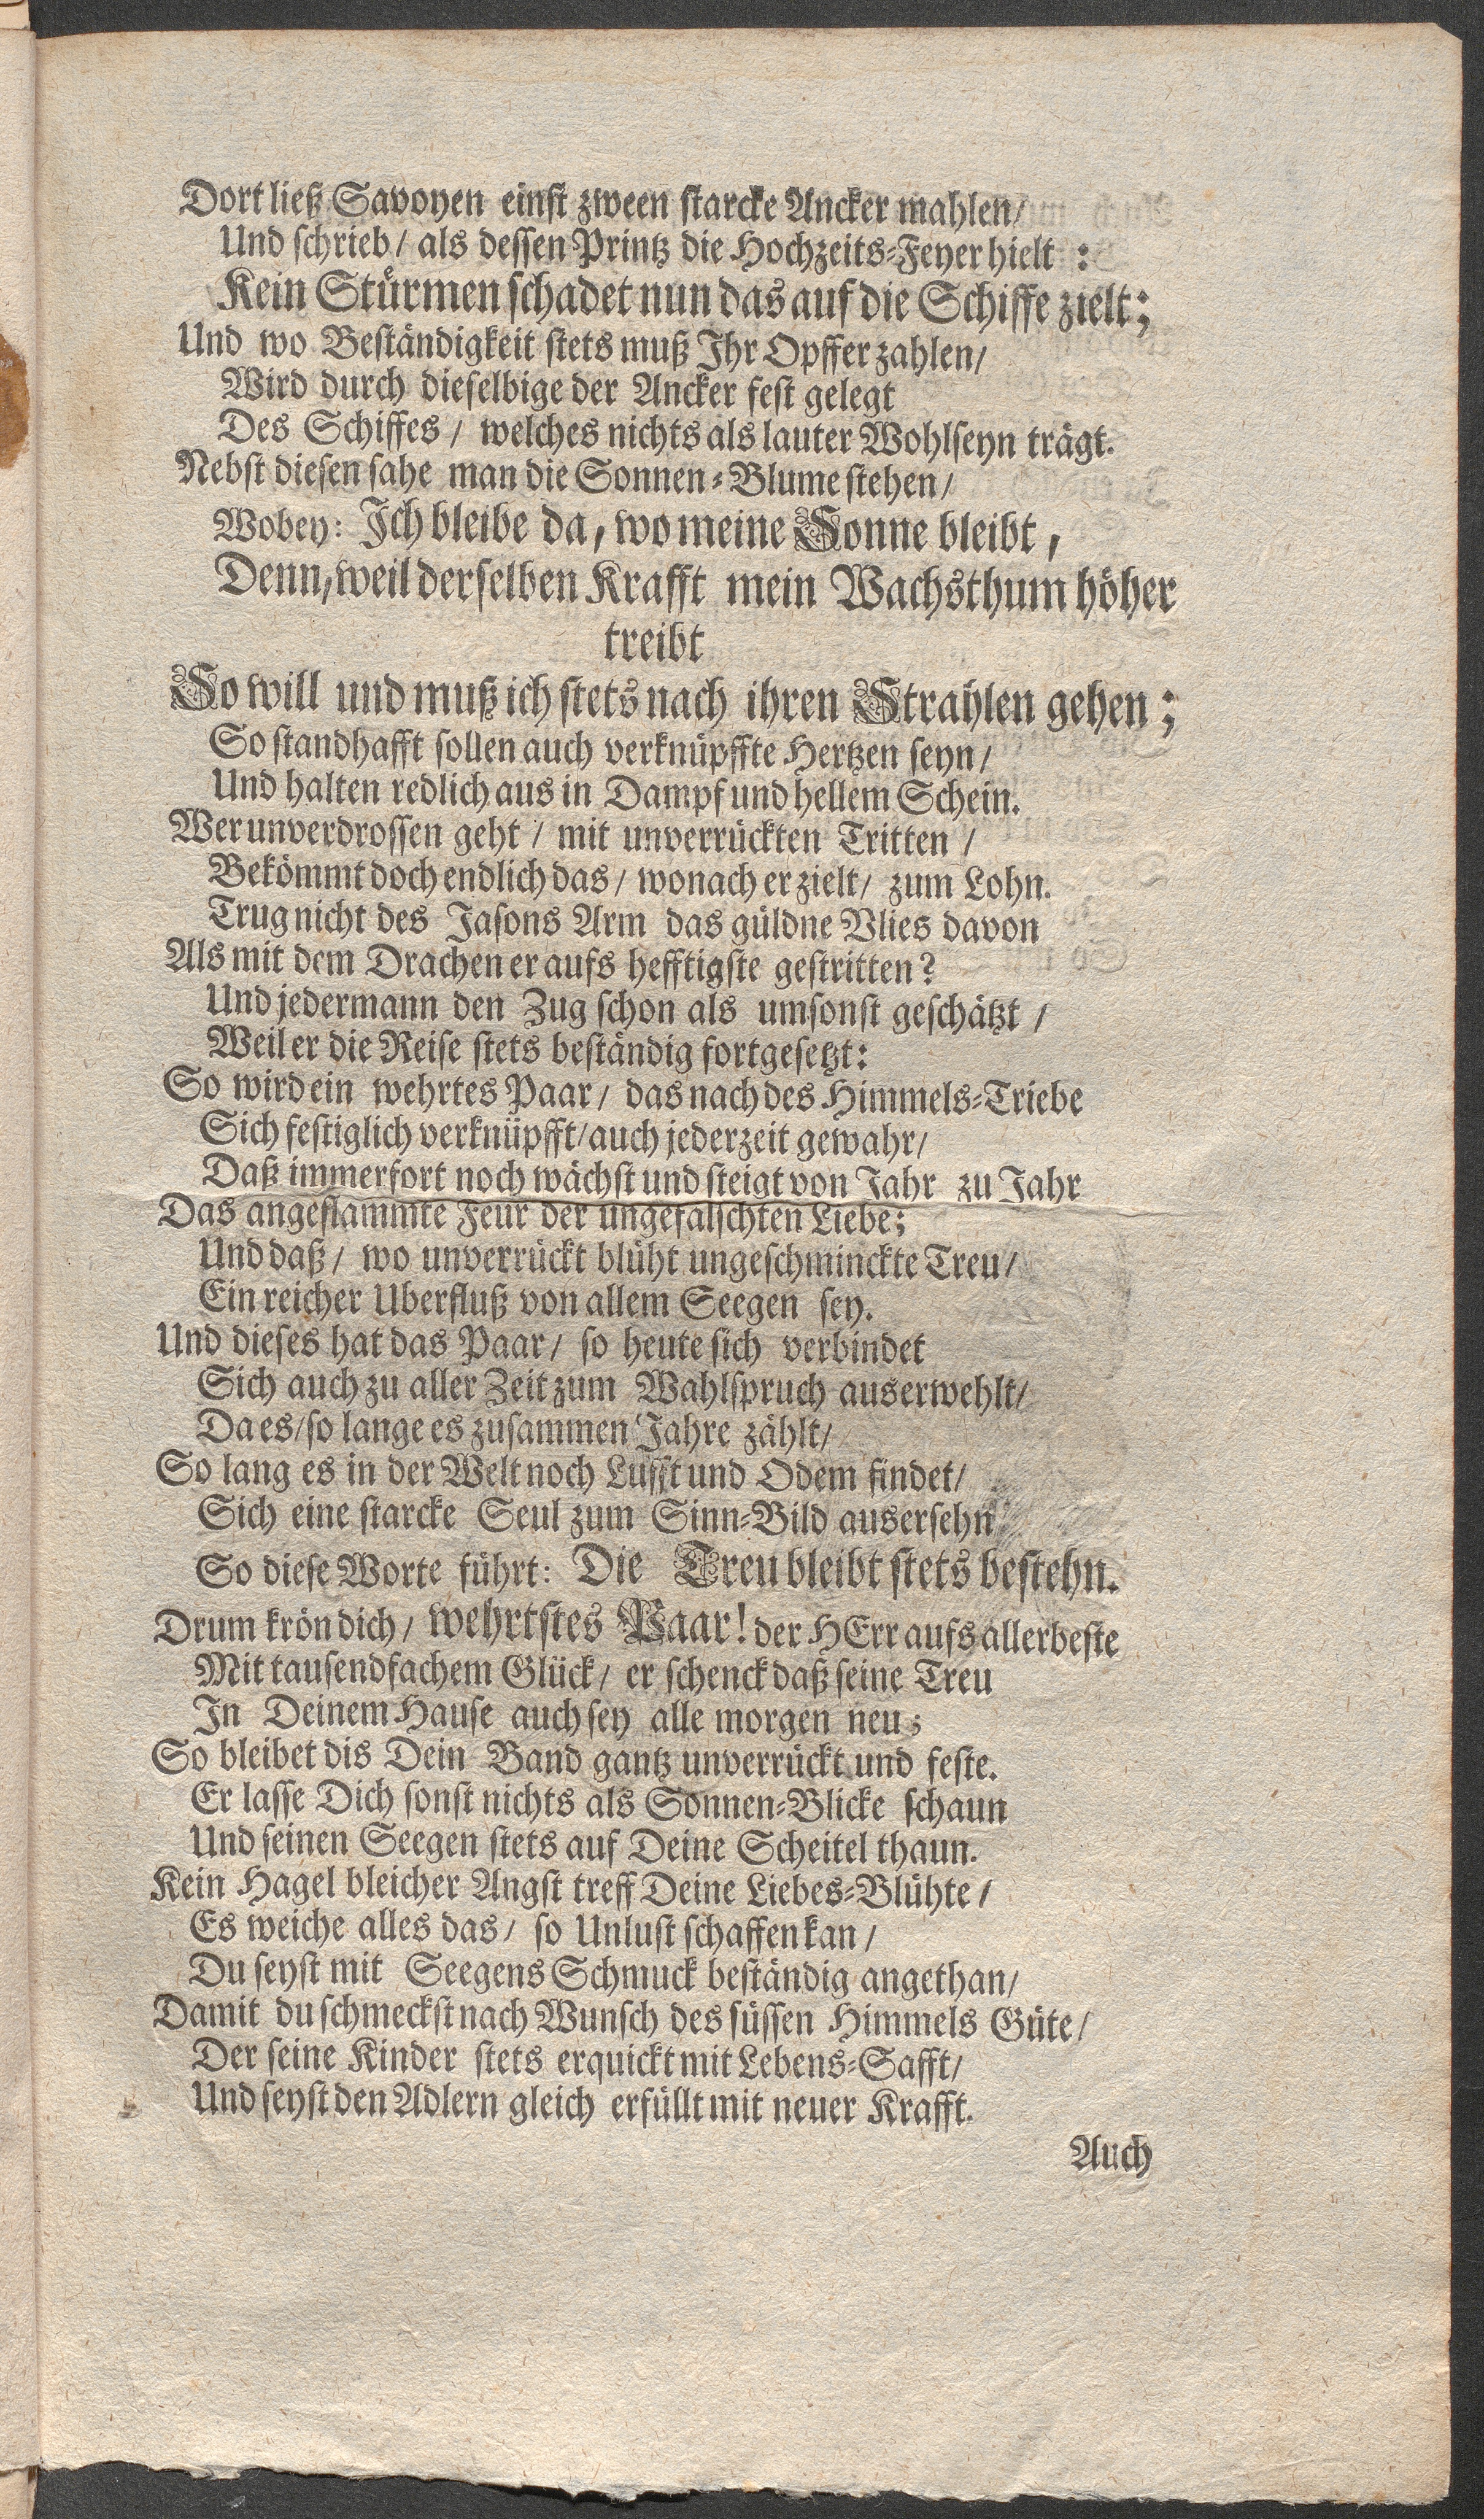 Dort ließ Savoyen einst zween starcke Ancker mahlen/
Und schrieb/ als dessen Printz die Hochzeits-Feyer hielt :
Kein Stürmen schadet nun das auf die Schiffe zielt;
Und wo Beständigkeit stets muß Ihr Opffer zahlen/
Wird durch dieselbige der Ancker fest gelegt
Des Schiffes / welches nichts als lauter Wohlseyn trägt.
Nebst diesen sahe man die Sonnen-Blume stehen/
Wobey: Ich bleibe da, wo meine Sonne bleibt,
Denn, weil derselben Krafft mein Wachsthum höher
treibt
So will und muß ich stets nach ihren Strahlen gehen;
So standhafft sollen auch verknüpffte Hertzen seyn/
Und halten redlich aus in Dampf und hellem Schein.
Wer unverdrossen geht / mit unverrückten Tritten /
Bekömmt doch endlich das/ wonach er zielt/ zum Lohn.
Trug nicht des Jasons Arm das güldne Vlies davon
Als mit dem Drachen er aufs hefftigste gestritten?
Und jedermann den Zug schon als umsonst geschätzt /
Weil er die Reise stets beständig fortgesetzt:
So wird ein wehrtes Paar/ das nach des Himmels-Triebe
Sich festiglich verknüpfft/ auch jederzeit gewahr/
Daß immerfort noch wächst und steigt von Jahr zu Jahr
Das angeflammte Feur der ungefälschten Liebe;
Und daß/ wo unverrückt blüht ungeschminckte Treu/
Ein reicher Uberfluß von allem Seegen sey.
Und dieses hat das Paar/ so heute sich verbindet
Sich auch zu aller Zeit zum Wahlspruch auserwehlt/
Da es/ so lange es zusammen Jahre zählt/
So lang es in der Welt noch Lufft und Odem findet/
Sich eine starcke Seul zum Sinn-Bild ausersehn
So diese Worte führt: Die Treu bleibt stets bestehn.
Drum krön dich/ wehrtstes Paar! der HErr aufs allerbeste
Mit tausendfachem Glück/ er schenck daß seine Treu
In Deinem Hause auch sey alle morgen neu;
So bleibet dis Dein Band gantz unverrückt und feste.
Er lasse Dich sonst nichts als Sonnen-Blicke schaun
Und seinen Seegen stets auf Deine Scheitel thaun.
Kein Hagel bleicher Angst treff Deine Liebes-Blühte/
Es weiche alles das/ so Unlust schaffen kan/
Du seyst mit Seegens Schmuck beständig angethan/
Damit du schmeckst nach Wunsch des süssen Himmels Güte/
Der seine Kinder stets erquickt mit Lebens-Safft/
Und seyst den Adlern gleich erfüllt mit neuer Krafft.
Auch